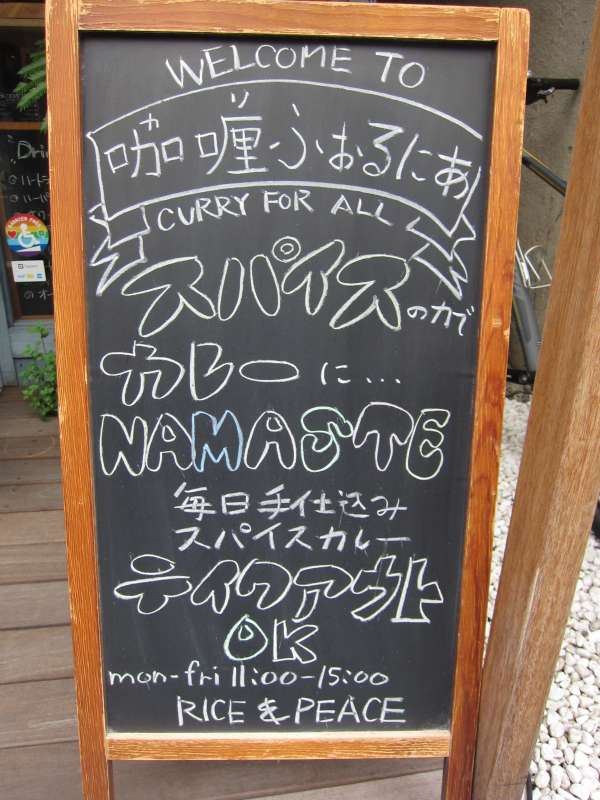 WELCOME TO
咖喱ふぉるにあ
CURRY FOR ALL
スパイスの力で
カレーに...
NAMASTE
毎日手仕込み
スパイスカレー
テイクアウト
OK
mon-fri 11:00-15:00
RICE & PEACE
Dri